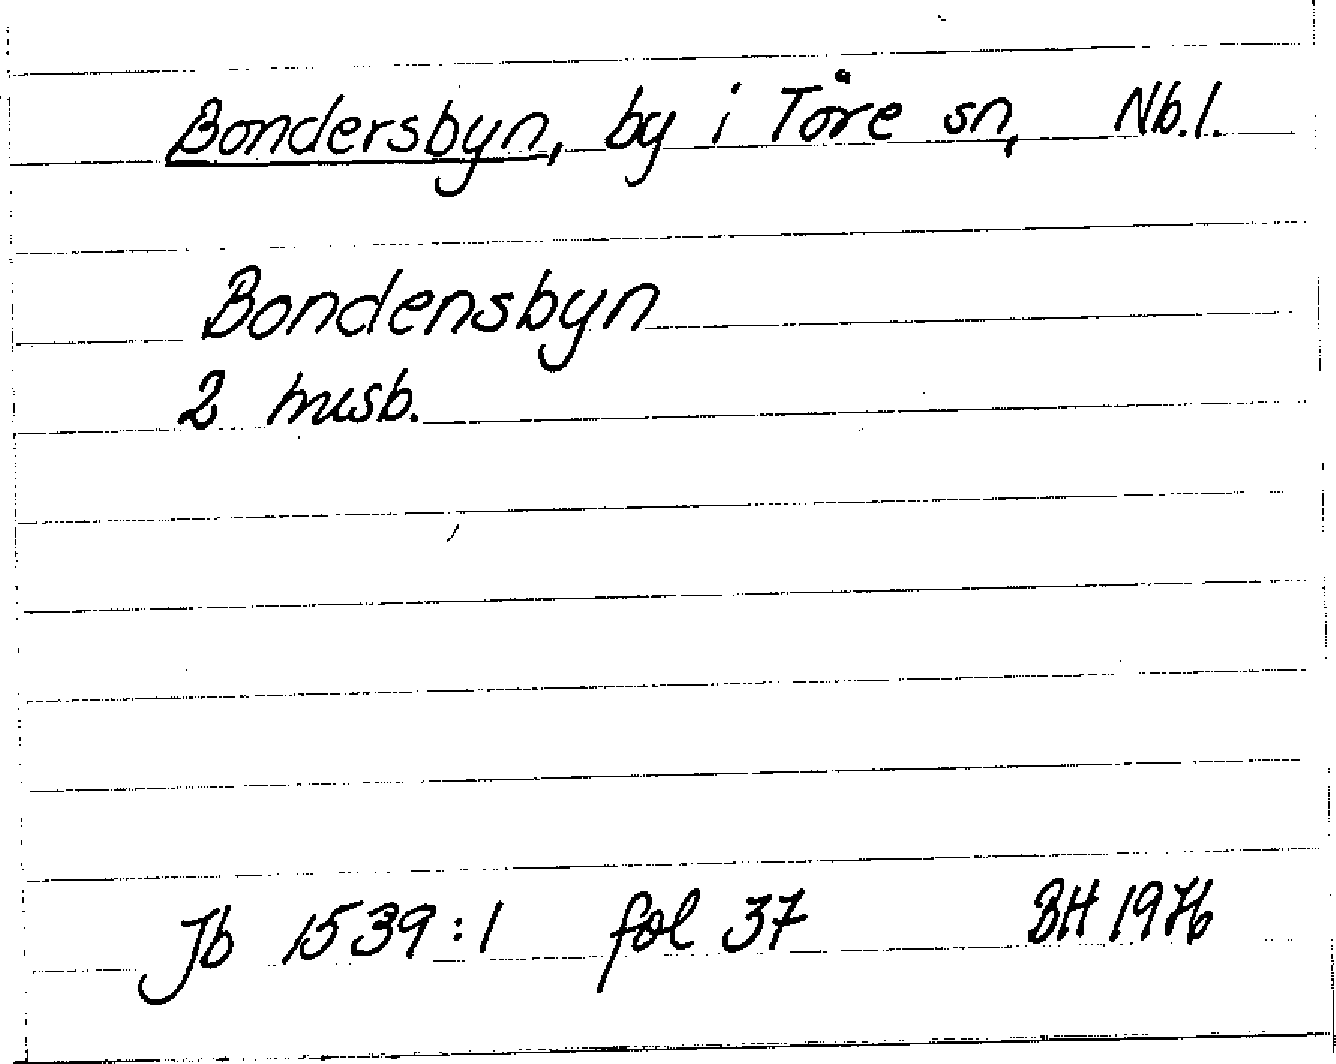 Bondersbyn, by i Töre sn, Nb.l.
Bondensbyn
2 husb.
Jb 1539:1 fol 37 BH 1976